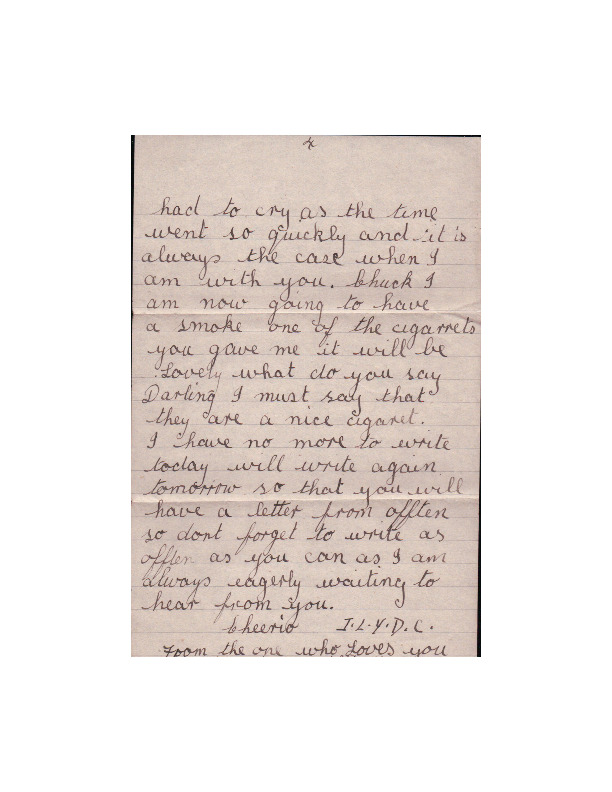 4
had to cry as the time
went so quickly and it is
always the case when I
am with you. Chuck I
am now going to have
a smoke one of the cigarrets
you gave me it will be
Lovely what do you say
Darling I must say that
they are a nice cigaret.
I have no more to write
today will write again
tomorrow so that you will
have a letter from offten
so dont forget to write as
offten as you can as I am
always eagerly waiting to
hear from you.
Cheerio I.L.Y.D.C.
From the one who Loves you